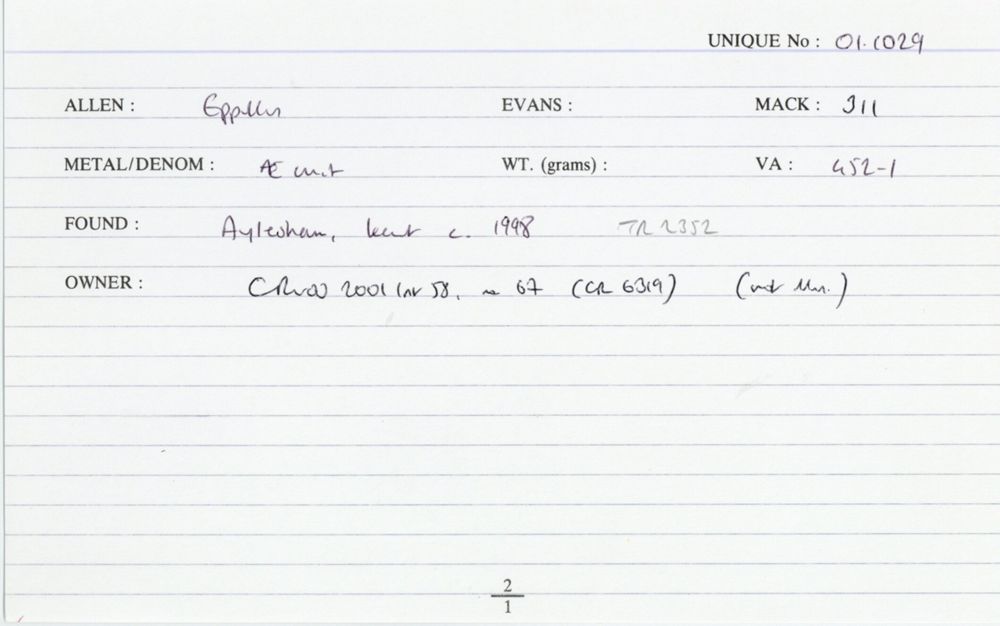 UNIQUE No : 01.1029
ALLEN : Eppillus EVANS : MACK : 311
METAL/DENOM : Æ unit WT. (grams) : VA : 452-1
FOUND : Aylesham, Kent c. 1998 TR 2352
OWNER : 2001 58, no 67 (CR 6319) (not
2
1